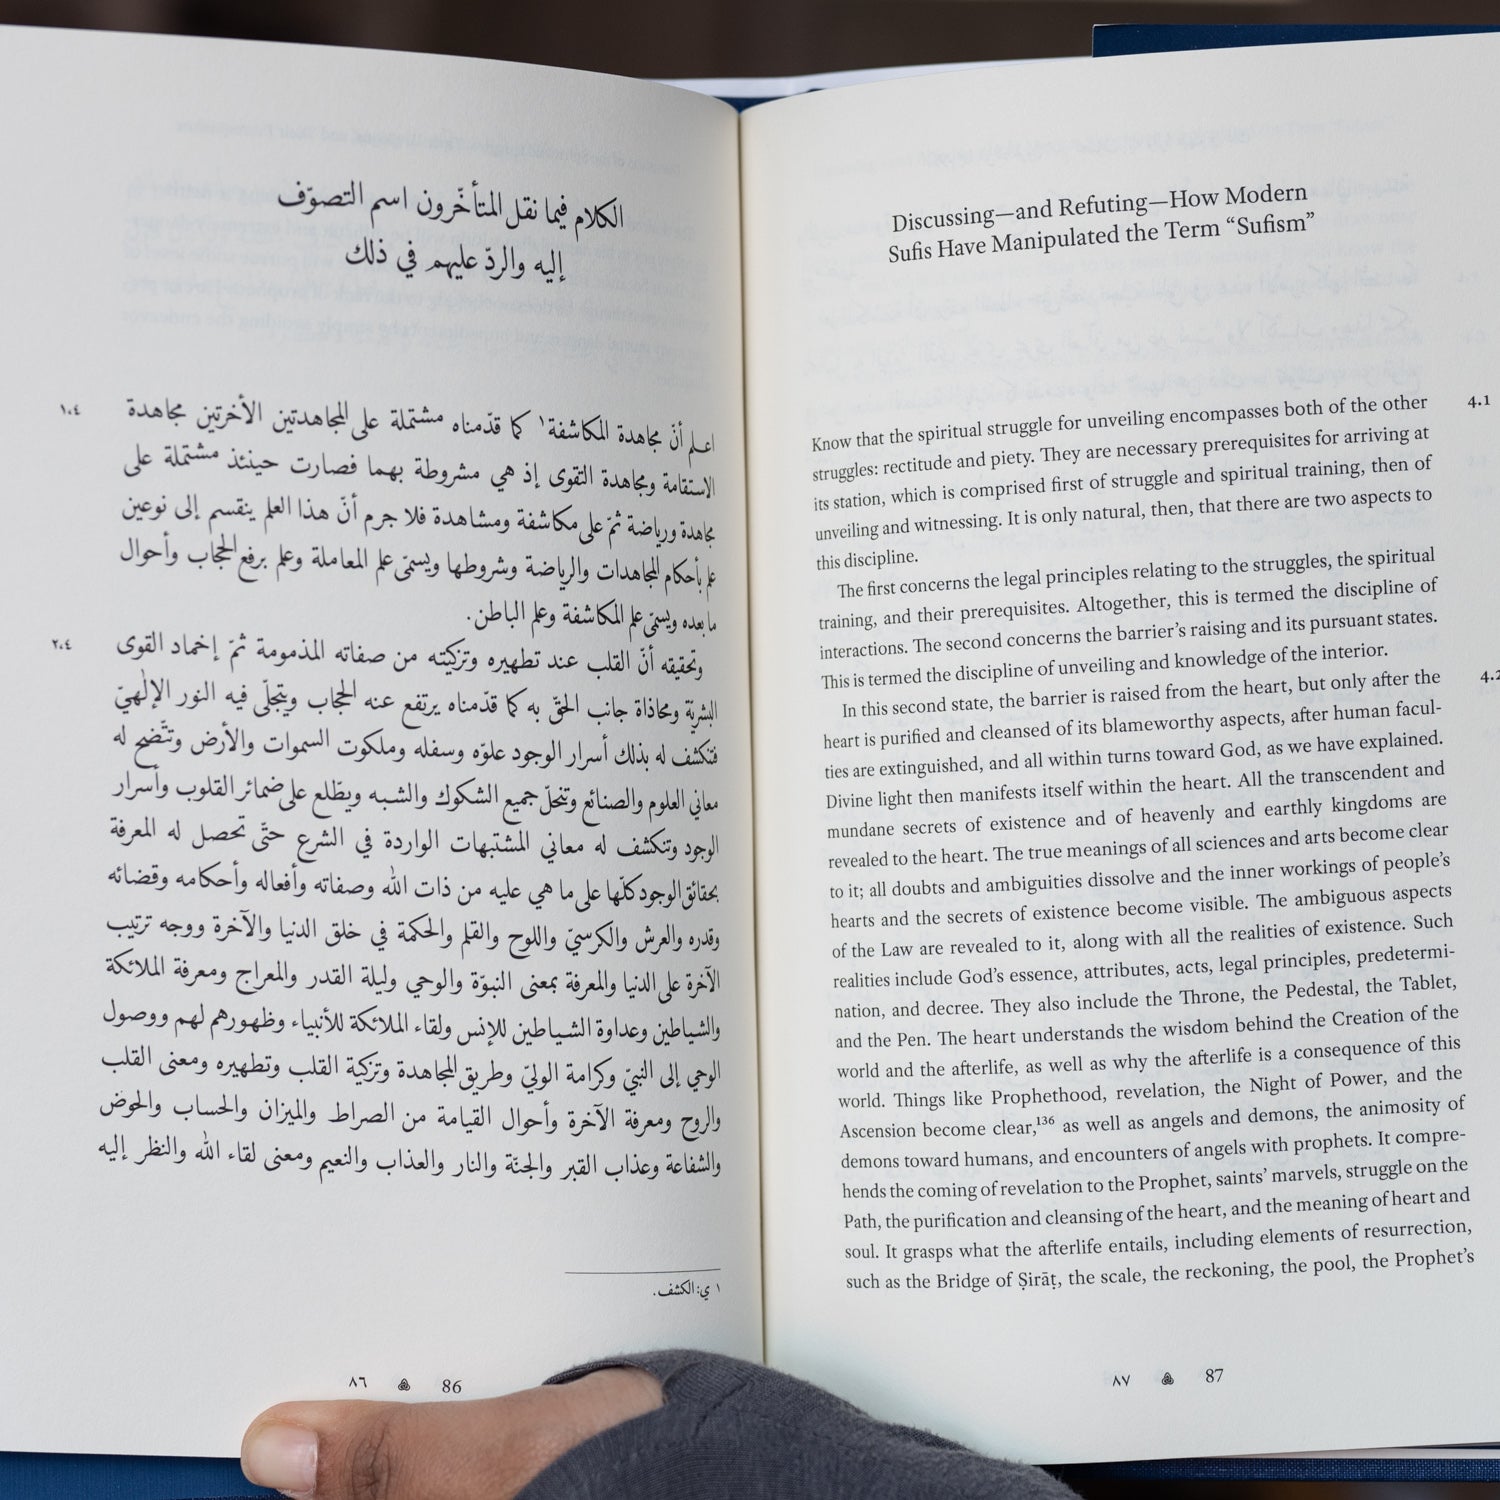 الكلام فيما نقل المتأخّرون اسم التصوّف
إليه والردّ عليهم في ذلك
١،٤
اعلم أنّ مجاهدة المكاشفة١ كما قدّمناه مشتملة على المجاهدتين الأخرتين مجاهدة
الاستقامة ومجاهدة التقوى إذ هي مشروطة بهما فصارت حينئذ مشتملة على
مجاهدة ورياضة ثمّ على مكاشفة ومشاهدة فلا جرم أنّ هذا العلم ينقسم إلى نوعين
علم بأحكام المجاهدات والرياضة وشروطها ويسمّى علم المعاملة وعلم برفع الحجاب وأحوال
ما بعده ويسمّى علم المكاشفة وعلم الباطن.
٢،٤
وتحقيقه أنّ القلب عند تطهيره وتزكيته من صفاته المذمومة ثمّ إخماد القوى
البشريّة ومحاذاة جانب الحقّ به كما قدّمناه يرتفع عنه الحجاب ويتجلّى فيه النور الإلٰهيّ
فتنكشف له بذلك أسرار الوجود علوّه وسفله وملكوت السموات والأرض وتتّضح له
معاني العلوم والصنائع وتنحلّ جميع الشكوك والشبه ويطّلع على ضمائر القلوب وأسرار
الوجود وتنكشف له معاني المشتبهات الواردة في الشرع حتّى تحصل له المعرفة
بحقائق الوجود كلّها على ما هي عليه من ذات الله وصفاته وأفعاله وأحكامه وقضائه
وقدره والعرش والكرسيّ واللوح والقلم والحكمة في خلق الدنيا والآخرة ووجه ترتيب
الآخرة على الدنيا والمعرفة بمعنى النبوّة والوحي وليلة القدر والمعراج ومعرفة الملائكة
والشياطين وعداوة الشياطين للإنس ولقاء الملائكة للأنبياء وظهورهم لهم ووصول
الوحي إلى النبيّ وكرامة الوليّ وطريق المجاهدة وتزكية القلب وتطهيره ومعنى القلب
والروح ومعرفة الآخرة وأحوال القيامة من الصراط والميزان والحساب والحوض
والشفاعة وعذاب القبر والجنّة والنار والعذاب والنعيم ومعنى لقاء الله والنظر إليه
١ ي: الكشف.
٨٦ 86
Discussing—and Refuting—How Modern
Sufis Have Manipulated the Term “Sufism”
4.1
Know that the spiritual struggle for unveiling encompasses both of the other
struggles: rectitude and piety. They are necessary prerequisites for arriving at
its station, which is comprised first of struggle and spiritual training, then of
unveiling and witnessing. It is only natural, then, that there are two aspects to
this discipline.
The first concerns the legal principles relating to the struggles, the spiritual
training, and their prerequisites. Altogether, this is termed the discipline of
interactions. The second concerns the barrier’s raising and its pursuant states.
This is termed the discipline of unveiling and knowledge of the interior.
4.2
In this second state, the barrier is raised from the heart, but only after the
heart is purified and cleansed of its blameworthy aspects, after human facul-
ties are extinguished, and all within turns toward God, as we have explained.
Divine light then manifests itself within the heart. All the transcendent and
mundane secrets of existence and of heavenly and earthly kingdoms are
revealed to the heart. The true meanings of all sciences and arts become clear
to it; all doubts and ambiguities dissolve and the inner workings of people’s
hearts and the secrets of existence become visible. The ambiguous aspects
of the Law are revealed to it, along with all the realities of existence. Such
realities include God’s essence, attributes, acts, legal principles, predetermi-
nation, and decree. They also include the Throne, the Pedestal, the Tablet,
and the Pen. The heart understands the wisdom behind the Creation of the
world and the afterlife, as well as why the afterlife is a consequence of this
world. Things like Prophethood, revelation, the Night of Power, and the
Ascension become clear,136 as well as angels and demons, the animosity of
demons toward humans, and encounters of angels with prophets. It compre-
hends the coming of revelation to the Prophet, saints’ marvels, struggle on the
Path, the purification and cleansing of the heart, and the meaning of heart and
soul. It grasps what the afterlife entails, including elements of resurrection,
such as the Bridge of Ṣirāṭ, the scale, the reckoning, the pool, the Prophet’s
٨٧ 87